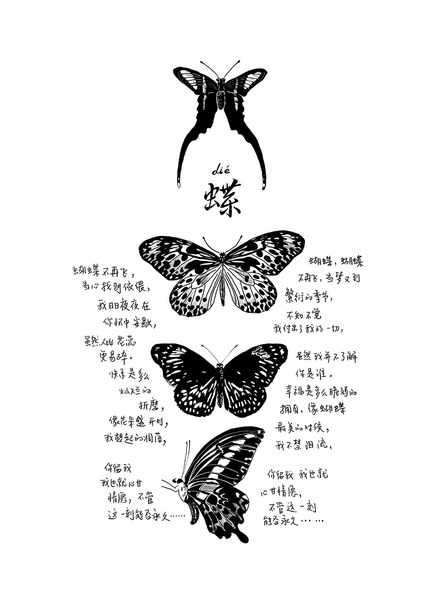 dié
蝶
蝴蝶不再飞,
当心找到依偎,
我日日夜夜在
你怀中安歇,
虽然心比花蕊
更易碎.
快乐是多么
灿烂的
折磨,
像花朵盛开时,
我想起的凋落.
你给我
我也就心甘
情愿,不管
这一刻能否永久……
蝴蝶,蝴蝶
不再飞,当梦又到
繁衍的季节,
不知不觉
我付出了我的一切,
虽然我并不了解
你是谁.
幸福是多么脆弱的
拥有,像蝴蝶
最美的时候,
我不禁泪流.
你给我 我也就
心甘
情愿,
不管这一刻
能否永久……